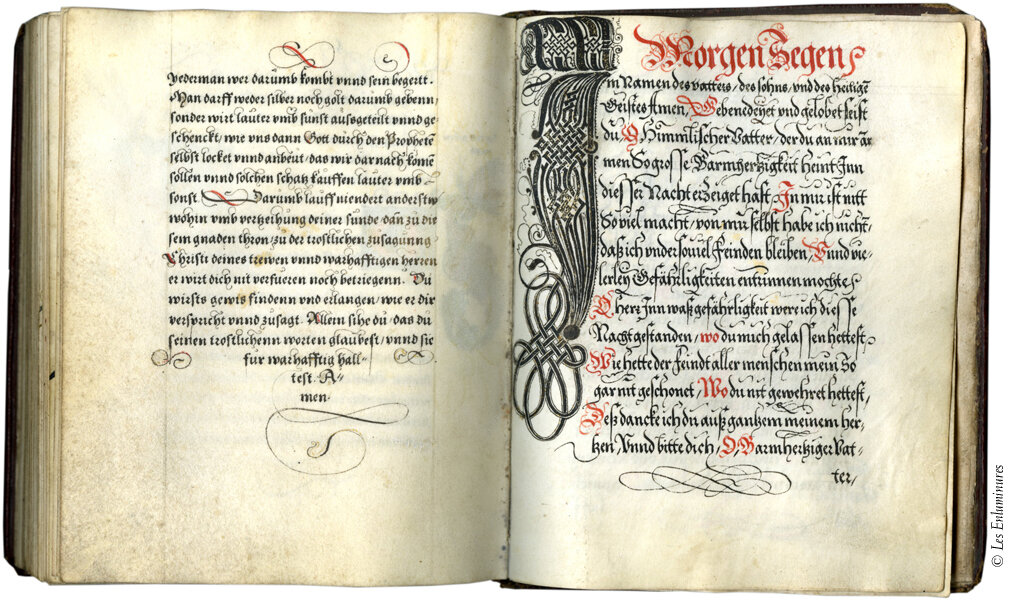 yederman wer darumb kombt vnnd sein begertt.
Man darff weder silber noch golt darumb gebenn,
sonder wirt lauter vmb sunst ausgeteilt vnnd ge-
schenckt, wie vns dann Gott durch den Prophetē
selbst locket vnnd anbeut, das wir darnach komē
sollen vnnd solchen schatz kauffen lauter vmb-
sonst. Darumb lauff niendert anderstw
wohin vmb vertzeihung deiner sunde, dan zu die
sem gnaden thron, zu der trostlichen zusagunng
Christi deines trewen vnnd warhafftigen herren
er wirt dich nit verfueren noch betriegenn. Du
wirsts gewis findenn vnd erlangen, wie er dir
verspricht vnnd zusagt. Allein sihe du, das du
seinen trostlichenn worten glaubest, vnnd sie
fur warhafftig hall-
test. A-
men.
Morgen Segen
Im Namen des vatters, des sohns, vnd des heiligē
Geistes Amen, Gebenedeyet vnd gelobet seist
du O Himmlischer Vatter, der du an mir ar
men So grosse Barmhertzigkeit heint Inn
diesser Nacht ertzeiget hast, In mir ist nitt
So viel macht, von mir selbst habe ich nicht,
daß ich vnder souiel Feinden bleiben, Vnnd vie-
lerley Gefährligkeiten entrinnen mochte,
O herr Inn waß gefährligkeit were ich diesse
Nacht gestanden, wo du mich gelassen hettest,
Wie hette der Feindt aller menschen mein So
gar nit geschonet, Wo du nit gewehret hettest,
Deß dancke ich dir auß gantzem meinem her-
tzen, Vnnd bitte dich, O, Barmhertziger Vat-
ter,
© Les Enluminures